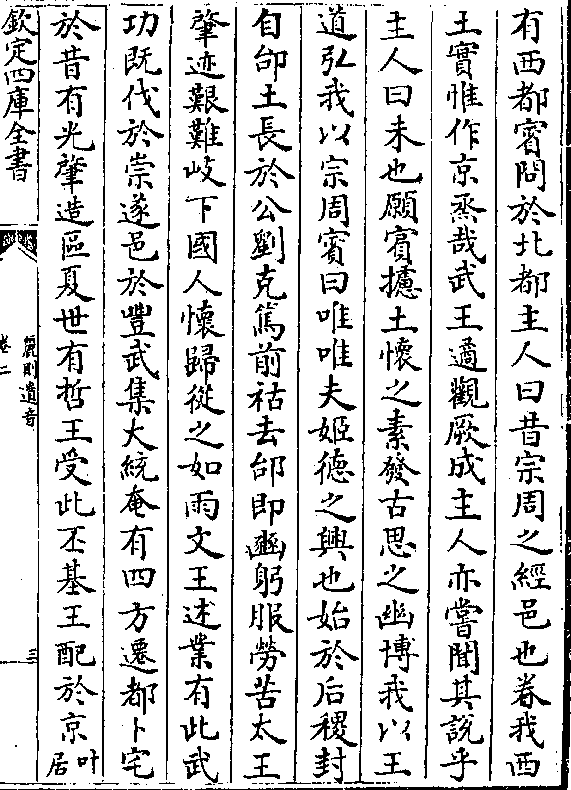 有西都賓問於北都主人曰昔宗周之經邑也眷我西
土實惟作京烝哉武王遹觀厥成主人亦嘗聞其說乎
主人曰未也願賓攄土懷之素發古思之幽博我以王
道弘我以宗周賓曰唯唯夫姬德之興也始於后稷封
自邰土長於公劉克篤前祜去邰即豳躬服勞苦太王
肇迹艱難岐下國人懷歸從之如雨文王述業有此武
功既伐於崇遂邑於豐武集大統奄有四方遷都卜宅
於昔有光肇造區夏世有哲王受此丕基王配於京叶居
欽定四庫全書
麗則遺音
卷二
三